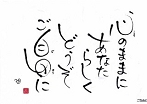 心のままに
あなた
らしく
どうぞ
ご自由に